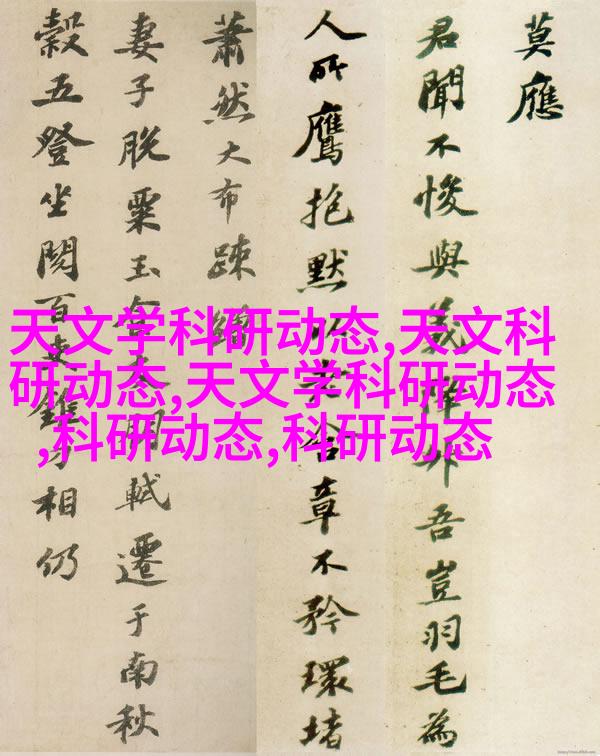 莫應
君聞不悛與義外吾豈羽毛為
人所鷹抱默以老含章不矜環堵
蕭然大布疎繒
妻子脫粟玉食軾遷于南秋
穀五登坐閱百吏錐刀相仍
天文学科研动态,天文科
研动态,天文学科研动态
,科研动态,科研动态